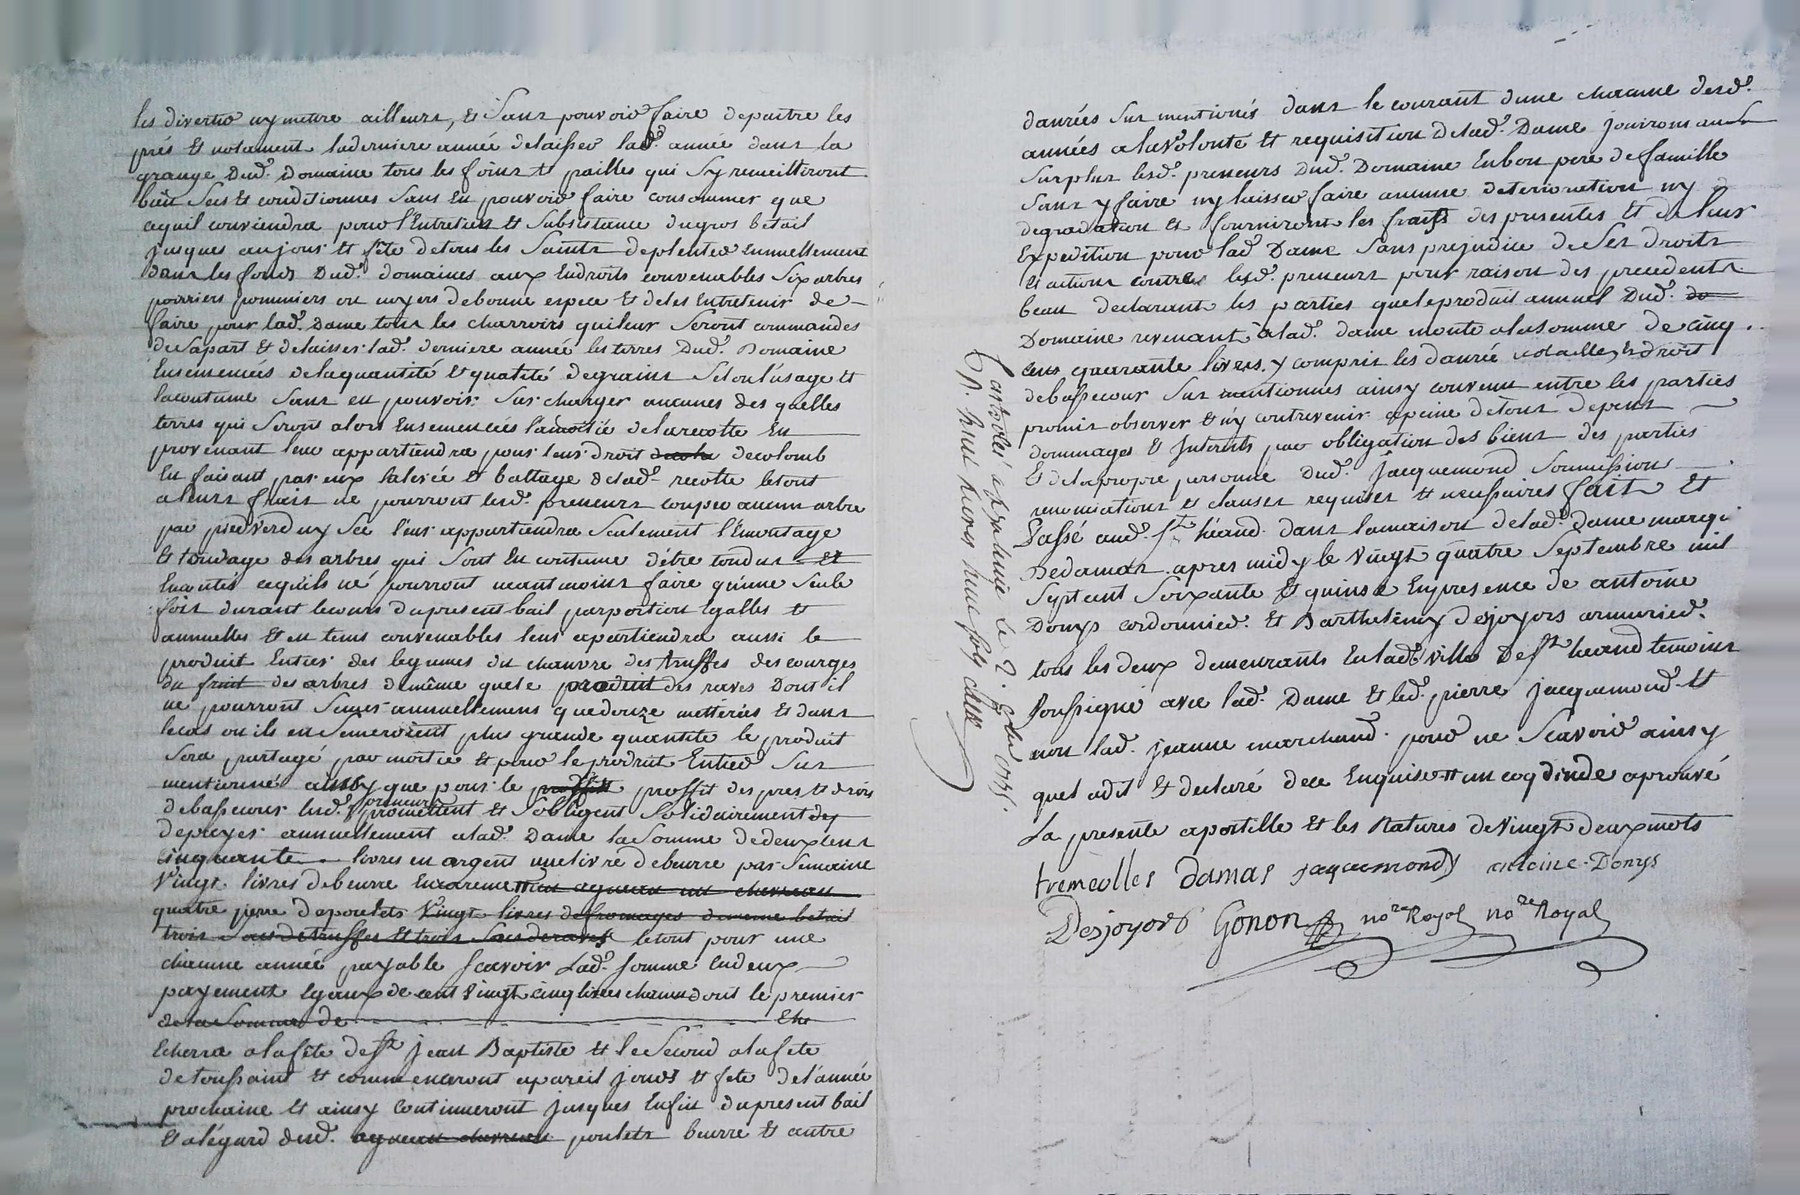 les divertir ny metre ailleurs, et Sans pouvoir faire depaitre les
prés et notament laderniere année delaisser lad.e année dans la
grange Dud. Domaine tous les foins et pailles qui Sy recueilliront
bien Secs et conditionnes Sans En pouvoir faire consommer que
cequil conviendra pour l'Entretien et Subsistance dugros betail
jusques aujour et fête detous les Saints deplenter annuellement
Dans les fonds Dud. domaines aux Endroits convenables Six arbres
poiriers pommiers ou noyers debonne espece et deles Entretenir de
faire pour lad. Dame tous les charroirs quileur Seront commandes
desapart et delaisser lad. derniere année les terres Dud. Domaine
Ensemencées delaquantité et qualité degrains Selon l'usage et
lacoutume Sans en pouvoir Sur charger aucunes des quelles
terres qui Seront alors Ensemencées lamoitié delarecolte En
provenant leur appartiendra pour leur droit decolomb
En faisant par eux la levée et battage delad. recolte letout
aleurs frais ne pourront lesd. preneurs couper aucun arbre
par pied verd ny Sec leur appartiendra Seulement l'Emontage
et tondage des arbres qui Sont En coutume d'être tondus et
Emontés cequils né pourront neantmoins faire qu'une Seule
fois durant lecours dupresent bail parportion Egalles et
annuelles et en tems convenables leur apartiendra aussi le
produit Entier des legumes du chanvre des truffes des courges
du fruit des arbres demême quele produit des raves Dont il
né pourront Semer annuellement quedouze metterées et dans
lecas ou ils en Semeroient plus grande quantité le produit
Sera partagé par moitié et pour le produit Entier Sus
mentionné ainsy que pour le proffit proffit des pres et droits
debassecour lesd. preneurs promettent et S'obligent Solidairement de
depayer annuellement alad. Dame la Somme dedeux cent
cinquante livres en argent une livre debeurre par Semaine
Vingt livres debeurre Encareme un agneau un chevreau
quatre paire depoulets Vingt livres defromages deleur betail
trois Sacs detruffes et trois Sacs deraves letout pour une
chacune année payable Scavoir Lad. Somme Endeux
payement Egaux de cent vingt cinq livres chacun dont le premier
dela Somme de
Echerra alafête de St. jean Baptiste et le Second alafete
de toussaint et commenceront apareil jours et fete de l'année
prochaine et ainsy Continueront jusques Enfin dupresent bail
et alégard desd. agneau chevreau poulets beurre et autre
danrées Sus mentionés dans le courant d'une chacune desd.
années alavolonté et requisition delad. Dame jouiront au
Surplus lesd. preneurs Dud. Domaine Enbon pere defamille
Sans y faire ny laisser faire aucune deterioration ny
degradation et fourniront les frais des presentes et deleur
Expedition pour lad. Dame Sans prejudice deSes droits
et actions contre lesd. preneurs pour raison des precedents
beau declarant les parties queleproduit annuel Dud.
Domaine revenant alad. dame monte alasomme de cinq
cens quarante livres y compris les danrée et droit
debassecour Sus mentionnes ainsy convenu entre les parties
promis observer et n'y contrevenir apeine detous depens
dommages et Interets par obligation des biens des parties
et delapropre personne Dud. jacquemond Soumissions
renonciations et clauses requises et necessaires fait et
Passé aud. St. héand dans lamaison delad. dame marquise
Dedamas apres midy le Vingt quatre Septembre mil
Sept cent Soixante et quinse Enpresence de antoine
Donys cordonnier et Barthelemy desjoyors armurier
tous les deux demeurants Enlad. ville de St. heand temoins
soussigné avec lad. Dame et led. pierre jacquemond et
non lad. jeanne marchand pour ne Scavoir ainsy
quel adit et declaré dece Enquise un coq dinde aprouvé
La presente apostille et les Ratures de Vingt deux mots
tremeolles Damas jaquemond antoine Donys
Desjoyors Gonon no.re Royal no.re Royal
Controlé le 2.
huit livres neuf sols